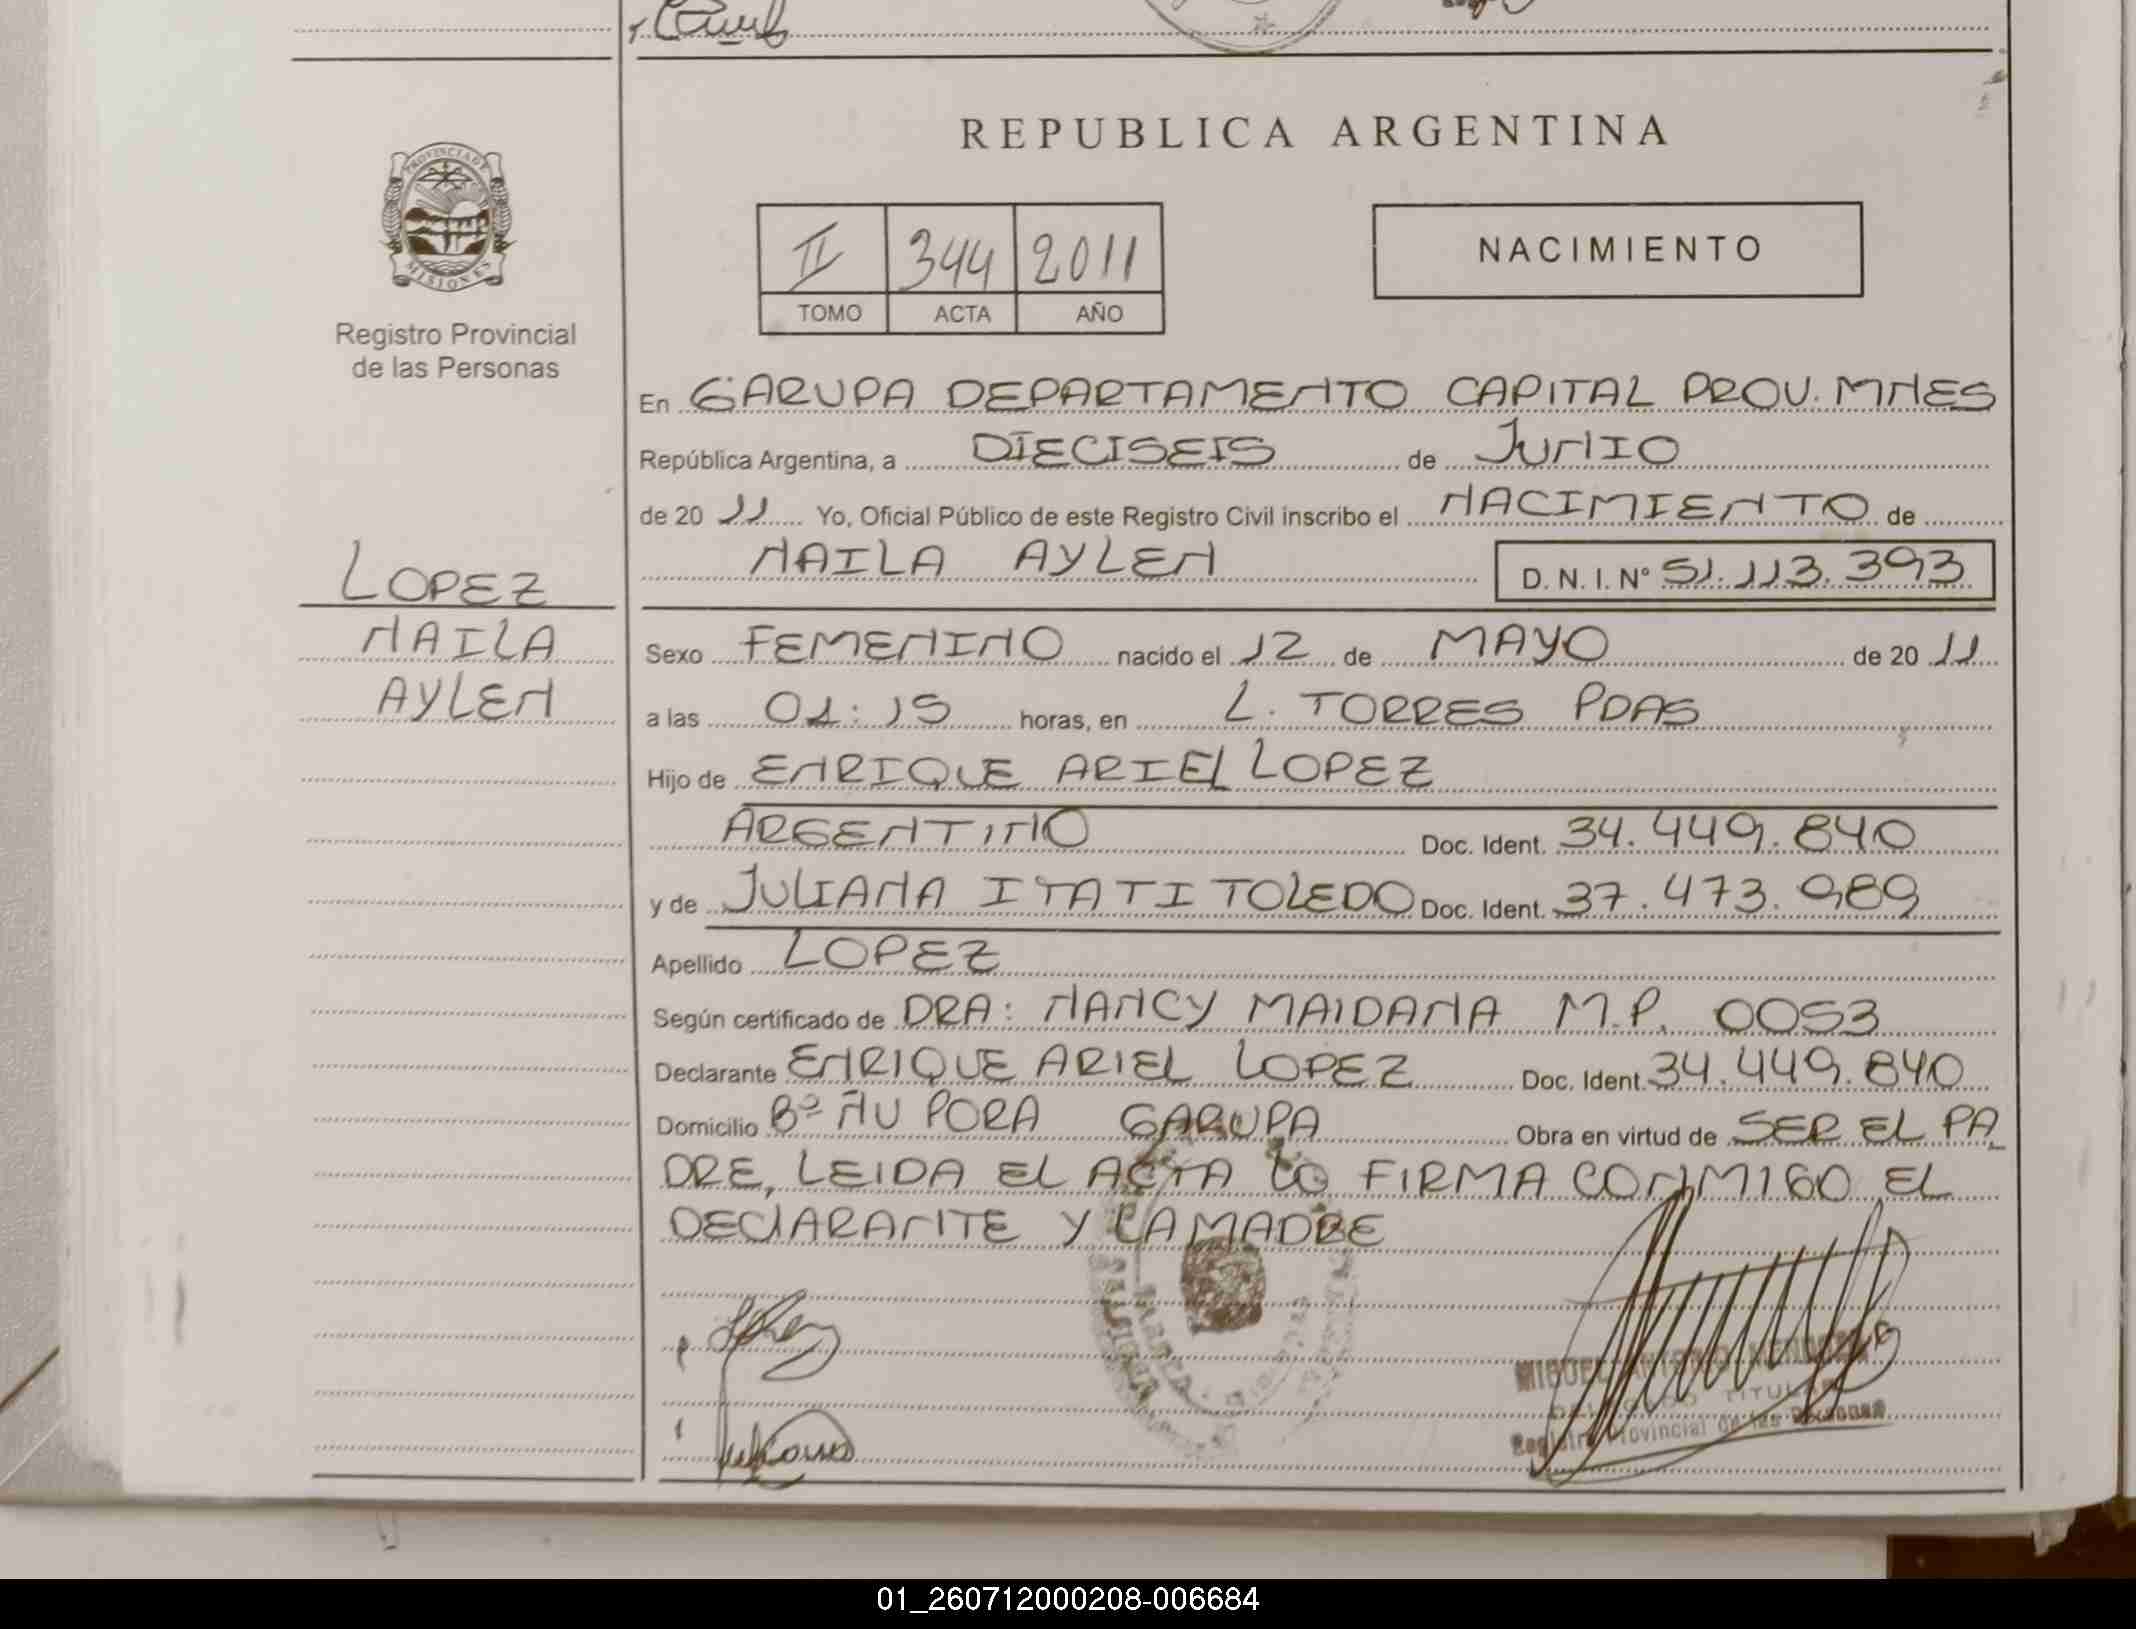 REPUBLICA ARGENTINA
PROVINCIA DE
MISIONES
Registro Provincial
de las Personas
II 344 2011
TOMO ACTA AÑO
NACIMIENTO
En GARUPA DEPARTAMENTO CAPITAL PROV. MNES
República Argentina, a DIECISEIS de JUNIO
de 20 11 Yo, Oficial Público de este Registro Civil inscribo el NACIMIENTO de
NAILA AYLEN D. N. I. N° 51.113.393
LOPEZ
NAILA
AYLEN
Sexo FEMENINO nacido el 12 de MAYO de 20 11
a las 01:15 horas, en L. TORRES PDAS
Hijo de ENRIQUE ARIEL LOPEZ
ARGENTINO Doc. Ident. 34.449.840
y de JULIANA ITATI TOLEDO Doc. Ident. 37.473.989
Apellido LOPEZ
Según certificado de DRA: NANCY MAIDANA M.P. 0053
Declarante ENRIQUE ARIEL LOPEZ Doc. Ident. 34.449.840
Domicilio Bº ÑU PORA GARUPA Obra en virtud de SER EL PA
DRE, LEIDA EL ACTA LO FIRMA CONMIGO EL
DECLARANTE Y LA MADRE
MIGUEL
TITULAR
Registro Provincial de las Personas
01_260712000208-006684